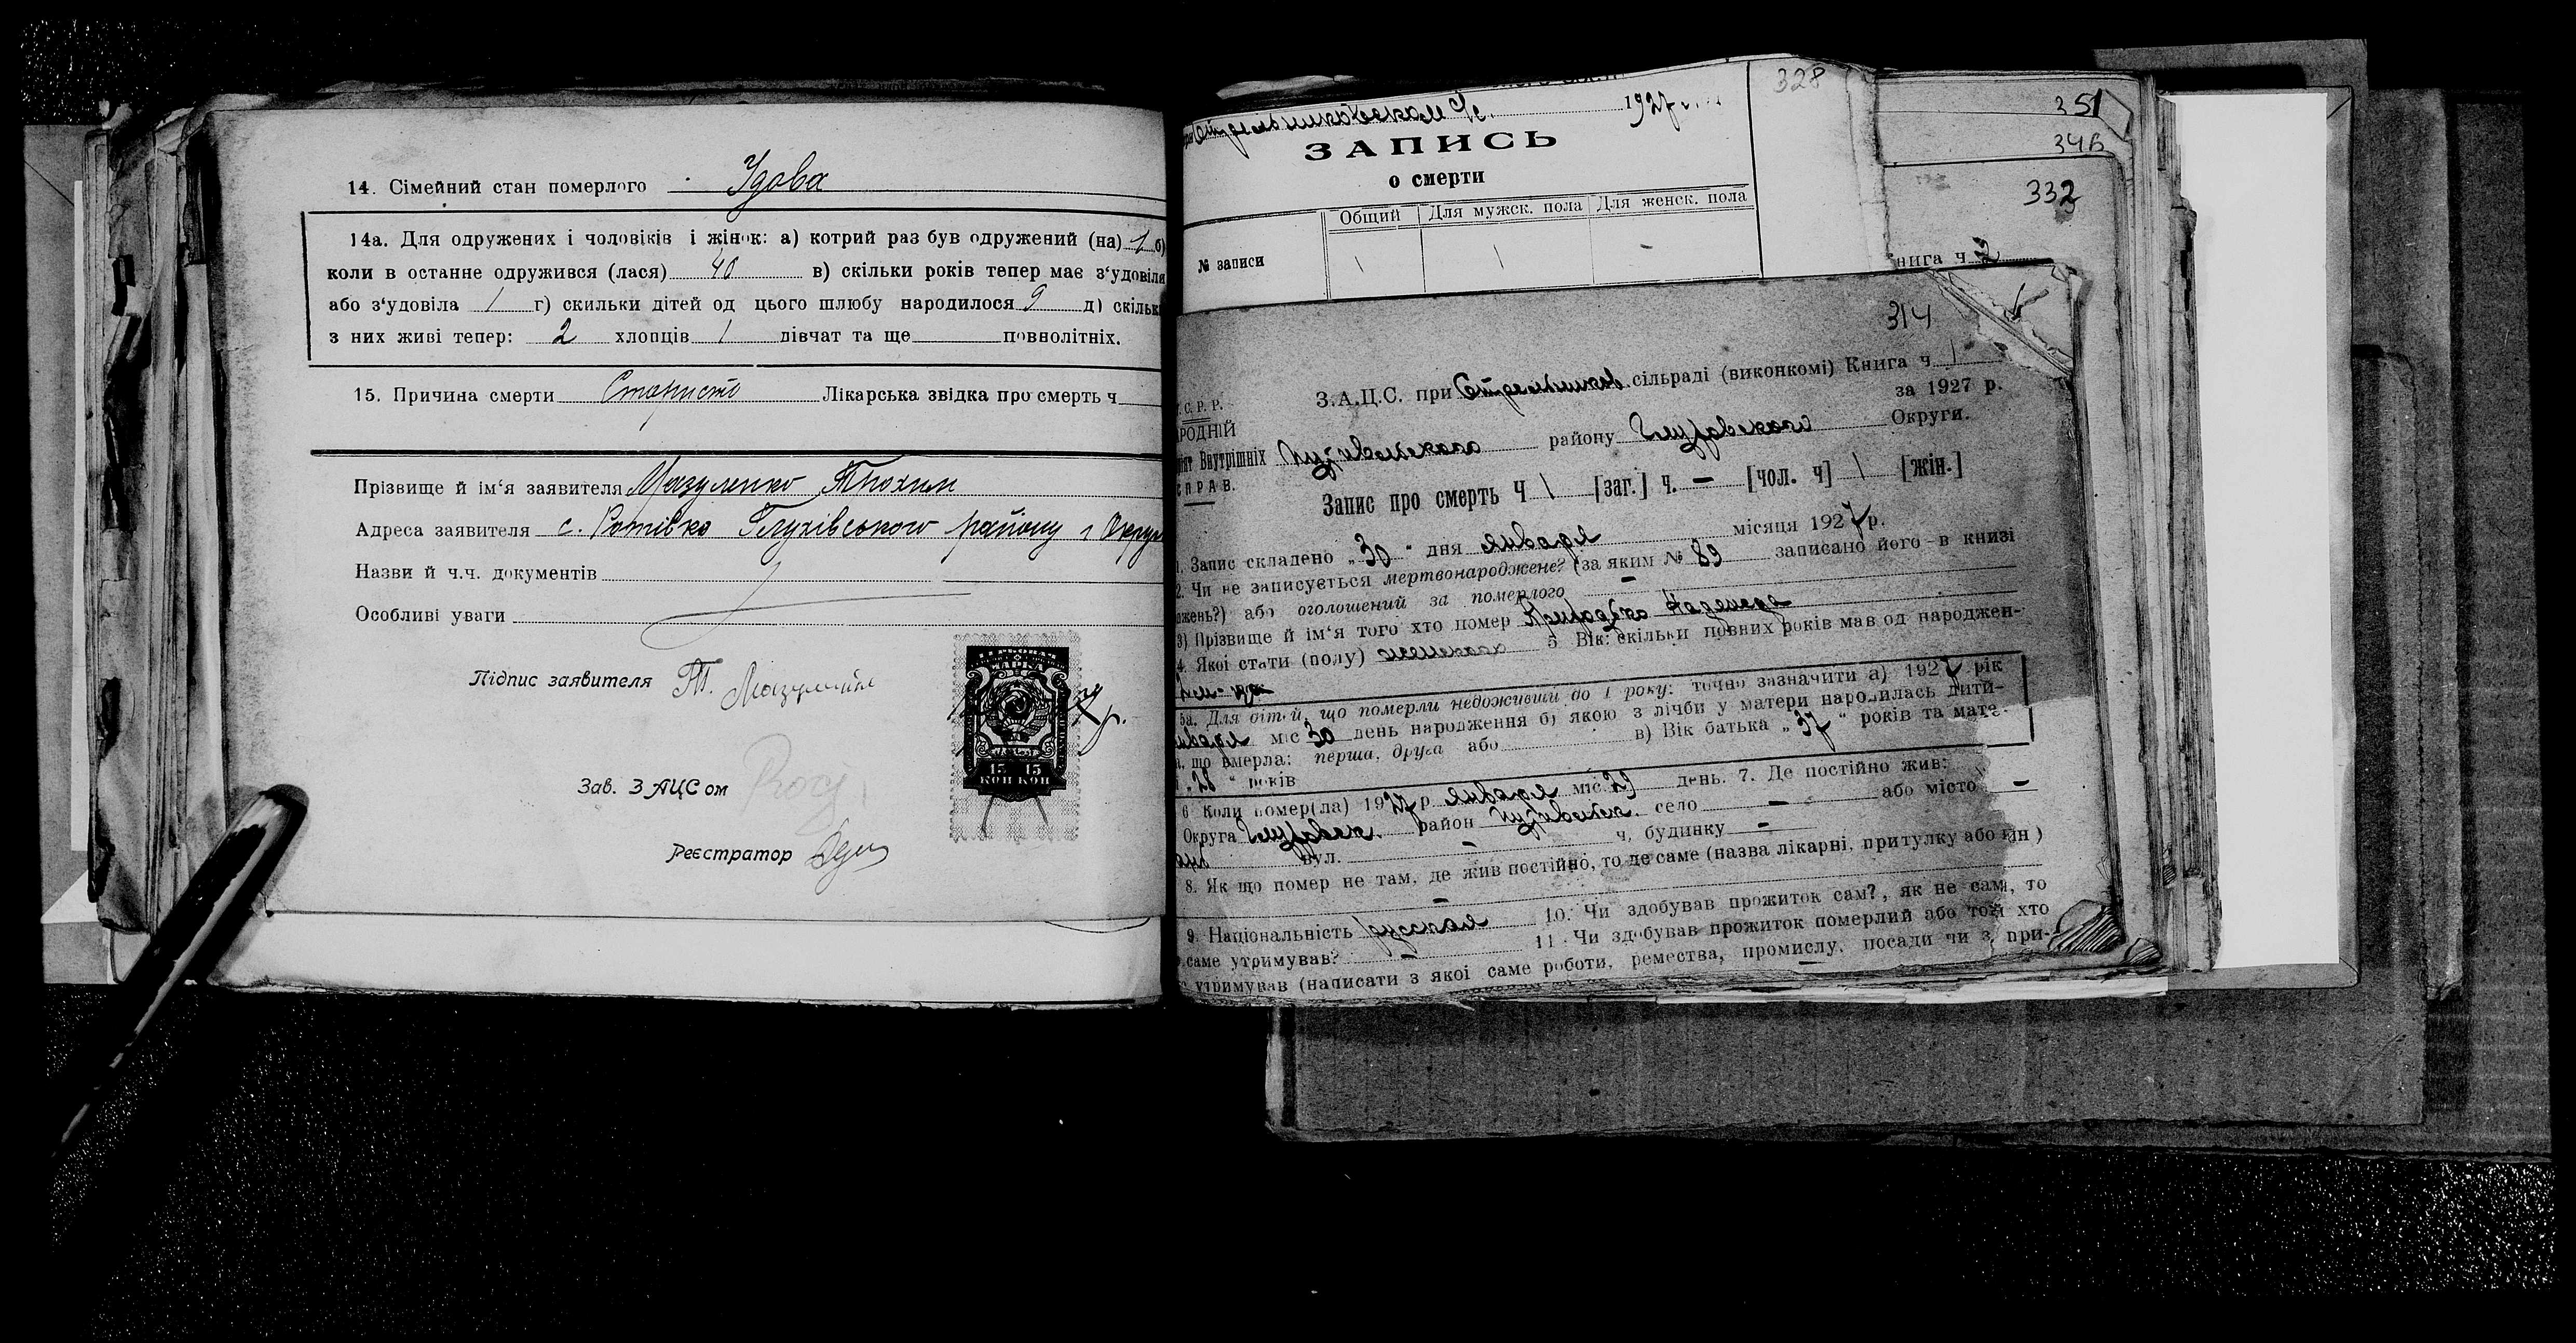 14. Сімейний стан померлого Удова
14а. Для одружених і чоловіків і жінок: а) котрий раз був одружений (на) 1 б)
коли в останне одружився (лася) 40 в) скільки років тепер має з'удовіли
або з'удовіла 1 г) скильки дітей од цього шлюбу народилося 9 д) скільки
з них живі тепер: 2 хлопців 1 дівчат та ще повнолітніх.
15. Причина смерти Старисть Лікарська звідка про смерть ч
Прізвище й ім'я заявителя Мазуленко Трохим
Адреса заявителя с. Глухівського району і Округи
Назви й ч.ч. документів
Особливі уваги
Підпис заявителя Т. Мазуленко
ГЕРБОВАЯ
МАРКА
15 15
КОП КОП
Зав. ЗАЦСом
Реєстратор
1927 г.
328
ЗАПИСЬ
о смерти
Общий Для мужск. пола Для женск. пола
№ записи 1 1 -
351
348
332
Книга ч 2
314
З.А.Ц.С. при сільраді (виконкомі) Книга ч 1
за 1927 р.
С.Р.Р.
НАРОДНІЙ
Внутрішніх Путивльского району Глуховского Округи.
СПРАВ.
Запис про смерть Ч 1 [заг.] ч. — [чол. ч] 1 [жін.]
1. Запис складено „30" дня января місяця 1927 р.
2. Чи не записується мертвонароджене? (за яким № 89 записано його в книзі
жень?) або оголошений за померлого —
3) Прізвище й ім'я того хто помер Надежда
4. Якої стати (полу) женская 5 Вік: скільки повних років мав од народжен-
5а. Для дітей, що померли недоживши до 1 року: точно зазначити а) 1927 рік
января міс 30 день народження б) якою з лічби у матери народилась дити-
а, що вмерла: перша, друга або в) Вік батька „37" років та мате-
„28" років
6 Коли помер(ла) 1927 р января міс. 29 день. 7. Де постійно жив:
Округа Глуховск. район Путивльск. село — або місто —
вул. — ч. будинку —
8. Як що помер не там, де жив постійно, то де саме (назва лікарні, притулку або ин )
—
9. Національність русская 10. Чи здобував прожиток сам?, як не сам, то
саме утримував? — 11. Чи здобував прожиток померлий або той хто
утримував (написати з якої саме роботи, ремества, промислу, посади чи з при-